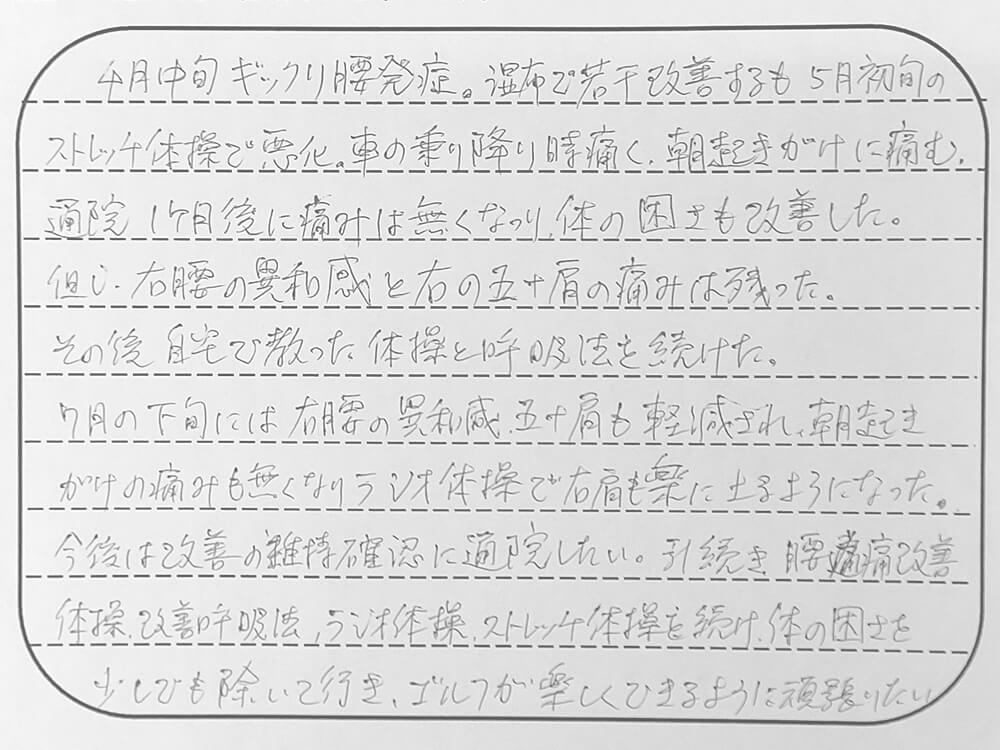 4月中旬ギックリ腰発症。湿布で若干改善するも5月初旬の
ストレッチ体操で悪化。車の乗り降り時痛く、朝起きがけに痛む、
通院1ケ月後に痛みは無くなり、体の困さも改善した。
但し、右腰の異和感と右の五十肩の痛みは残った。
その後自宅で教った体操と呼吸法を続けた。
7月の下旬には右腰の異和感、五十肩も軽減され、朝起き
がけの痛みも無くなりラジオ体操で右肩も楽に上るようになった。
今後は改善の維持確認に通院したい。引続き腰痛改善
体操、改善呼吸法、ラジオ体操、ストレッチ体操を続け、体の困さを
少しでも除いて行き、ゴルフが楽しくできるように頑張りたい